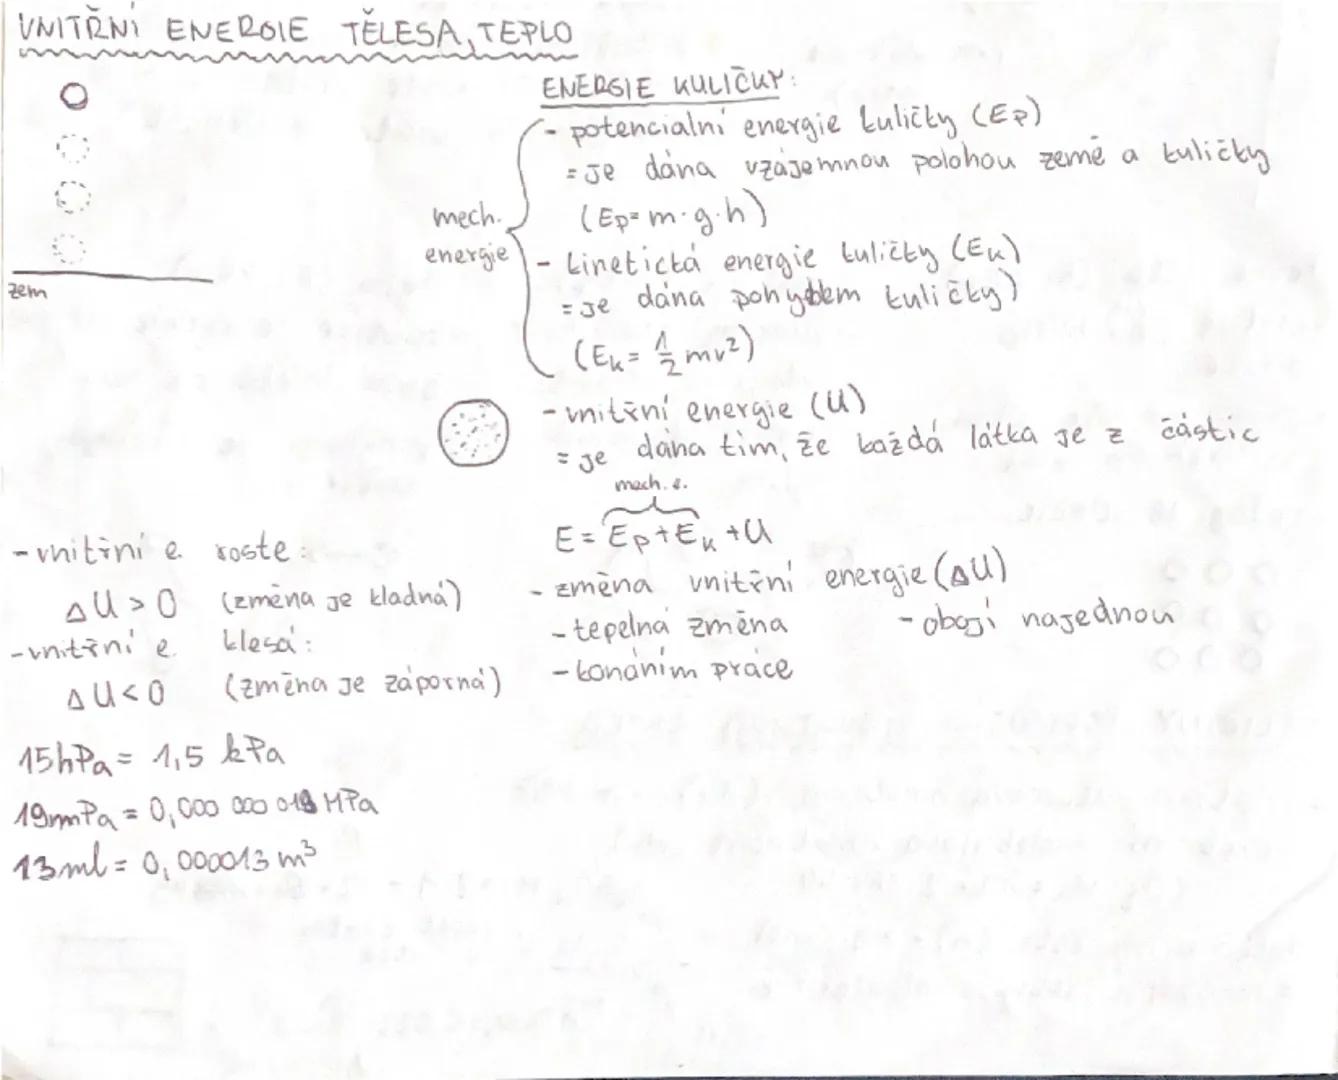 VNITŘNÍ ENERGIE TĚLESA, TEPLO
ENERGIE KULIČKY:
- potencialní energie kuličky (Ep)
= je dána vzájemnou polohou země a kuličky
(Ep = m·g·h)
mech.
energie
- kinetická energie kuličky (Ek)
= je dána pohybem kuličky)
(Ek = 1/2 mv²)
zem
- vnitřní energie (U)
= je dána tím, že každá látka je z částic
mech. e.
E = Ep + Ek + U
- změna vnitřní energie (ΔU)
- tepelná změna
- obojí najednou
- konáním práce
- vnitřní e. roste:
ΔU > 0 (změna je kladná)
- vnitřní e. klesá:
ΔU < 0 (změna je záporná)
15hPa = 1,5 kPa
19mPa = 0,000 000 019 MPa
13ml = 0,000013 m³